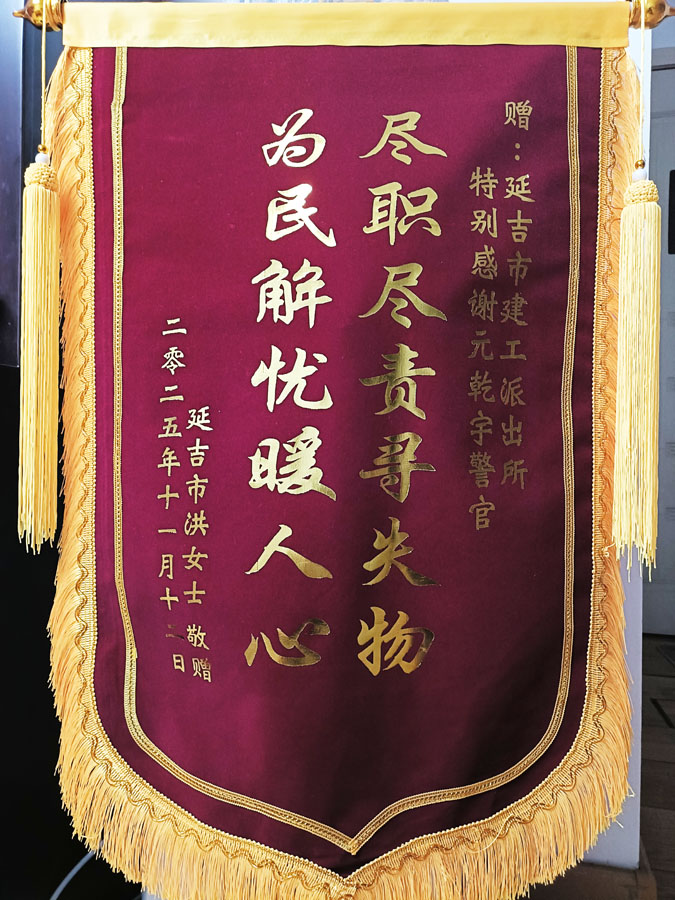 赠：延吉市建工派出所
特别感谢元乾宇警官
尽职尽责寻失物
为民解忧暖人心
延吉市洪女士 敬赠
二零二五年十一月十二日